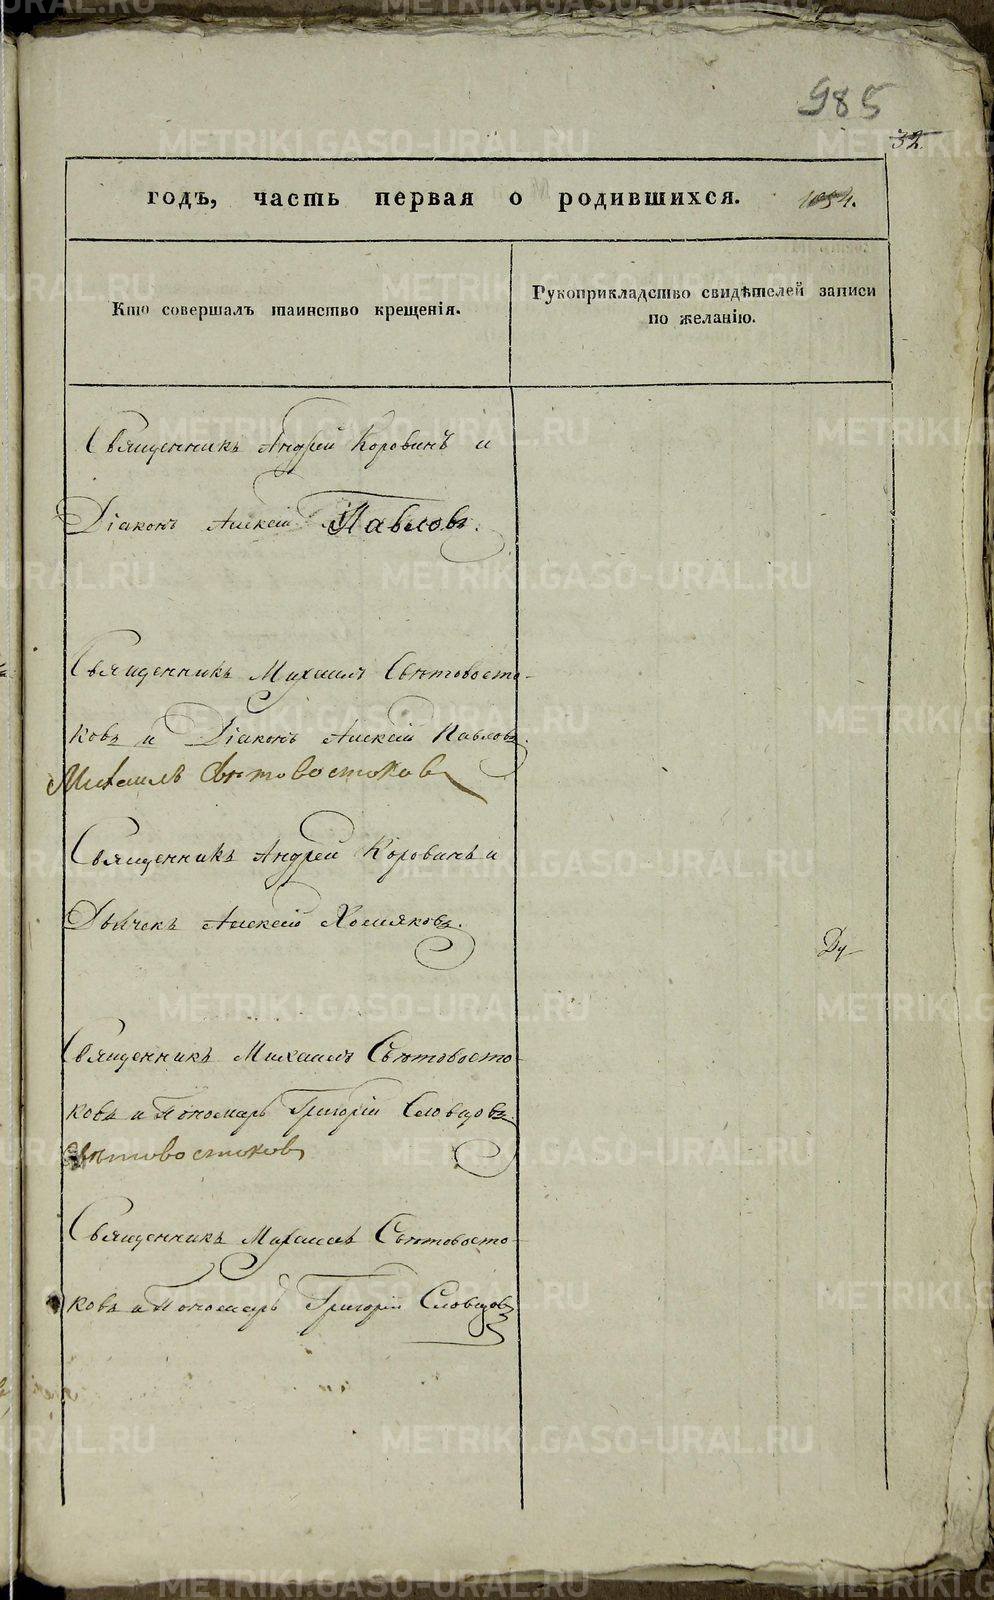 985
32
годъ, часть первая о родившихся.
Кто совершалъ таинство крещенія.
Рукоприкладство свидѣтелей записи
по желанію.
Священникъ Андрей Коровинъ и
Діаконъ Алексій Павловъ.
Священникъ Михаилъ Свѣтовосто-
ковъ и Діаконъ Алексій Павловъ.
Михаилъ Свѣтовостоковъ
Священникъ Андрей Коровинъ и
Дьячекъ Алексій Хомяковъ.
Священникъ Михаилъ Свѣтовосто-
ковъ и Пономарь Григорій Словцовъ.
Свѣтовостоковъ
Священникъ Михаилъ Свѣтовосто-
ковъ и Пономарь Григорій Словцовъ
METRIKI.GASO-URAL.RU